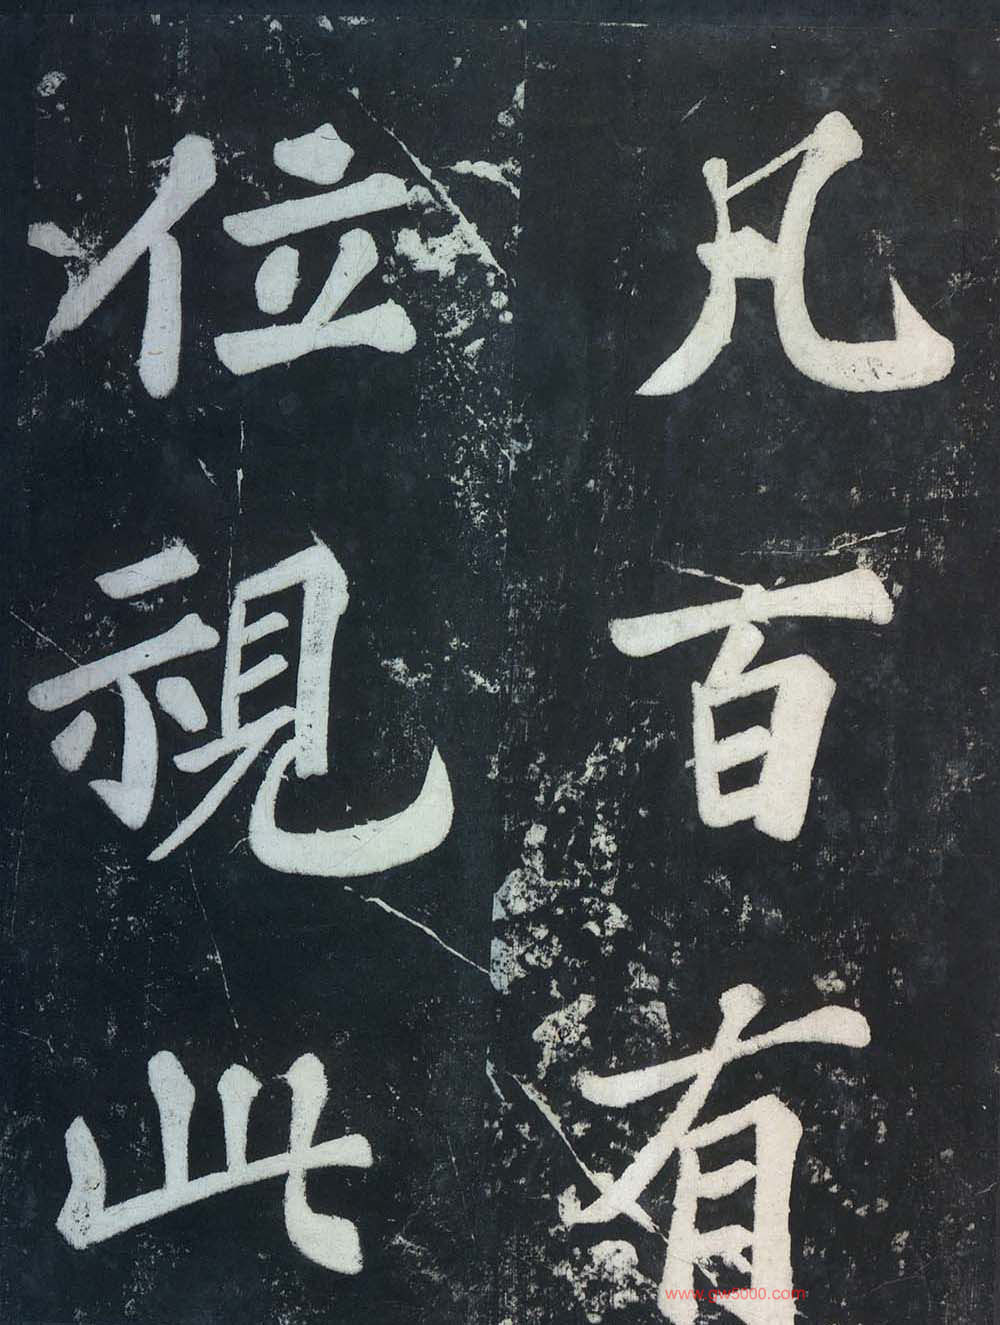 凡百有
位視此
www.gw5000.com